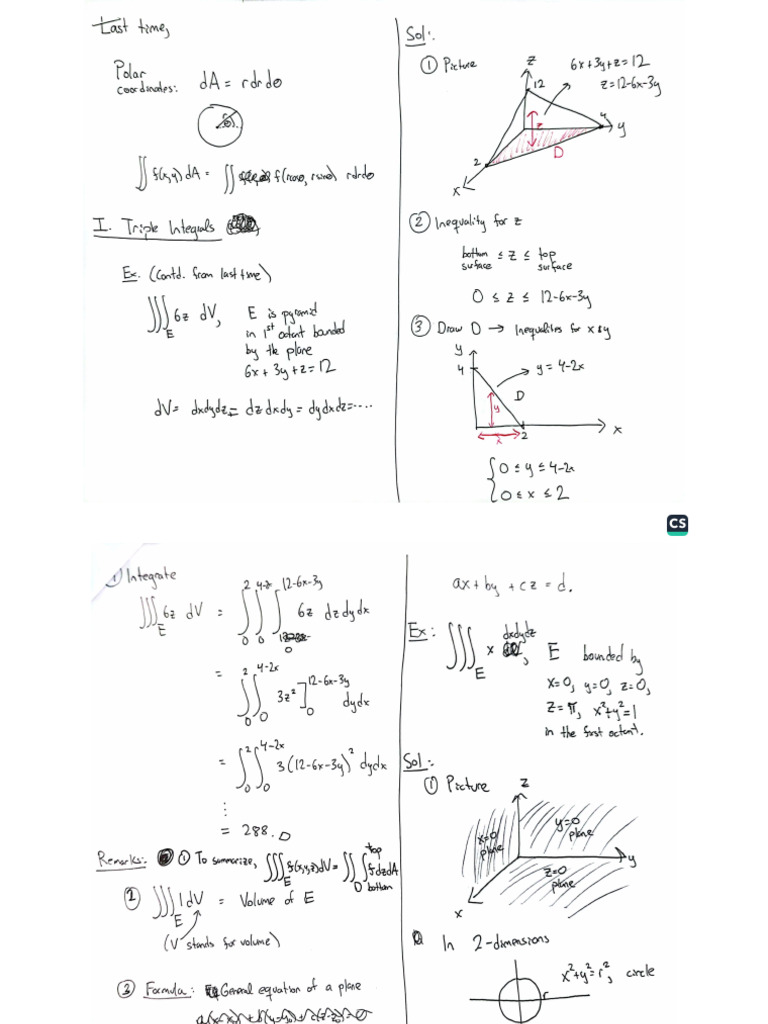 Last time,
Polar
coordinates: dA = r dr dθ
∬ f(x,y) dA = ∬ f(rcosθ, rsinθ) r dr dθ
I. Triple Integrals
Ex. (Contd. from last time)
∭_E 6z dV, E is pyramid
in 1st octant bounded
by the plane
6x + 3y + z = 12
dV = dxdydz = dzdxdy = dydxdz = ....
Sol:
① Picture
z
6x + 3y + z = 12
z = 12-6x-3y
12
z
4
y
2
D
x
② Inequality for z
bottom surface ≤ z ≤ top surface
0 ≤ z ≤ 12-6x-3y
③ Draw D → Inequalities for x & y
y
4
y = 4-2x
D
y
x
2
x
{ 0 ≤ y ≤ 4-2x
0 ≤ x ≤ 2
CS
① Integrate
∭_E 6z dV = ∫_0^2 ∫_0^{4-2x} ∫_0^{12-6x-3y} 6z dz dy dx
= ∫_0^2 ∫_0^{4-2x} 3z² ]_0^{12-6x-3y} dy dx
= ∫_0^2 ∫_0^{4-2x} 3(12-6x-3y)² dy dx
⋮
= 288. □
Remarks: ① To summarize, ∭_E f(x,y,z)dV = ∬_D ∫_bottom^top f dz dA
② ∭_E 1 dV = Volume of E
(V stands for volume)
③ Formula: General equation of a plane
a(x-x₀)+b(y-y₀)+c(z-z₀)=0
ax + by + cz = d.
Ex: ∭_E x dxdydz, E bounded by
x=0, y=0, z=0,
z=π, x²+y²=1
in the first octant.
Sol:
① Picture
z
x=0
plane
y=0
plane
z=0
plane
y
x
In 2-dimensions
x²+y²=r², circle
r